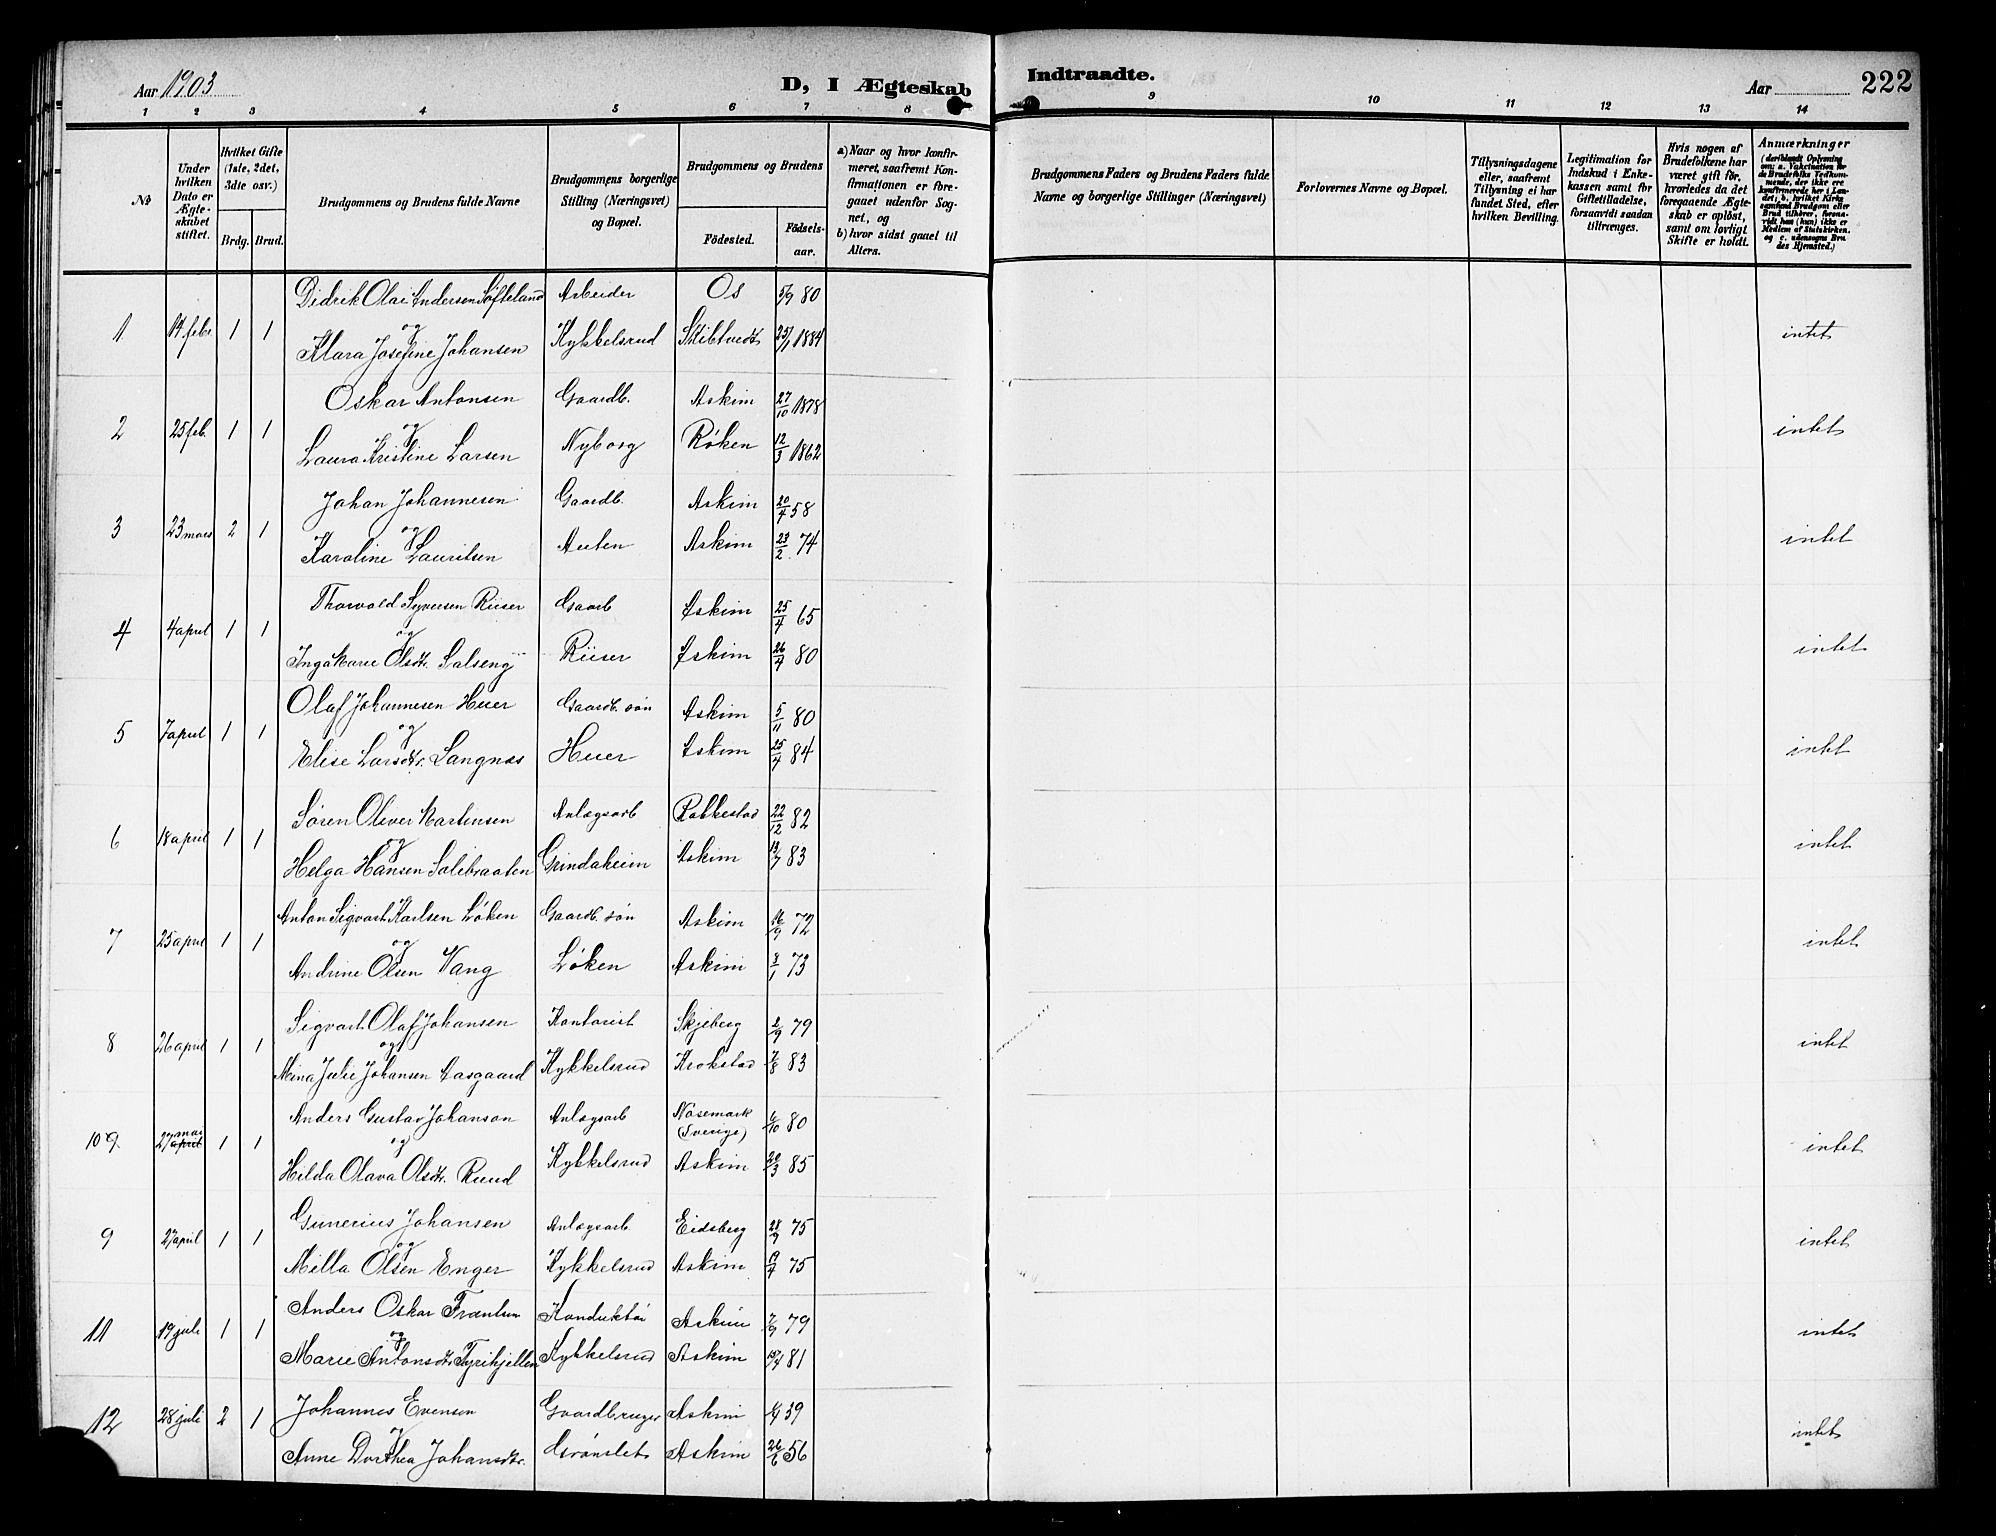 Aar 1903
D, I Ægteskab
Indtraadte.
Aar
222
1 2 3 4 5 6 7 8 9 10 11 12 13 14
No
Under hvilken Dato er Ægteskabet stiftet.
Hvilket Gifte (1ste, 2det, 3die osv.)
Brdg. Brud.
Brudgommens og Brudens fulde Navne
Brudgommens borgerlige Stilling (Næringsvei) og Bopæl.
Brudgommens og Brudens
Födested.
Födsels-aar.
a) Naar og hvor konfirmeret, saafremt Konfirmationen er foregaaet udenfor Sognet, og
b) hvor sidst gaaet til Alters.
Brudgommens Faders og Brudens Faders fulde Navne og borgerlige Stillinger (Næringsvei)
Forlovernes Navne og Bopæl.
Tillysningsdagene eller, saafremt Tillysning ei har fundet Sted, efter hvilken Bevilling.
Legitimation for Indskud i Enkekassen samt for Giftetilladelse, forsaavidt saadan tiltrænges.
Hvis nogen af Brudefolkene har været gift før, hvorledes da det foregaaende Ægteskab er oplöst, samt om lovligt Skifte er holdt.
Anmærkninger
(deriblandt Oplysning om: a. Vakcination for de Brudefolks Vedkommende, der ikke ere konfirmerede her i Landet; b. hvilket Kirkesamfund Brudgom eller Brud tilhører, forsaavidt han (hun) ikke er Medlem af Statskirken, og c. udensogns Brudes Hjemsted.)
Didrik Olai Andersen Søfteland Arbeider Os 5/9 80
1 14 febr 1 1 og intet
Klara Josefine Johansen Kykkelsrud Skibtvedt 25/1 1884
Oskar Antonsen Gaardb. Askim 27/10 1878
2 25 feb. 1 1 og intet
Laura Kristine Larsen Nyborg Røken 12/3 1862
Johan Johannesen Gaardb. Askim 20/4 58
3 23 mars 2 1 og intet
Karoline Lauritsen Auten Askim 23/2 74
Thorvald Syversen Riiser Gaarb Askim 25/4 65
4 4 april 1 1 og intet
Inga Marie Olsdtr. Salseng Riiser Askim 26/4 80
Olaf Johannesen Huer Gaardb. søn Askim 5/11 80
5 7 april 1 1 og intet
Elise Larsdtr. Langnæs Huer Askim 25/4 84
Søren Oliver Martinsen Anlægsarb Rakkestad 22/12 82
6 18 april 1 1 og intet
Helga Hansen Solebraaten Grindaheim Askim 13/7 83
Anton Sigvart Karlsen Løken Gaardb. søn Askim 16/9 72
7 25 april 1 1 og intet
Andrine Olsen Vang Løken Askim 8/1 73
Sigvart Olaf Johansen Kontorist Skjeberg 2/9 79
8 26 april 1 1 og intet
Mina Julie Johansen Aasgaard Kykkelsrud Krokstad 7/8 83
Anders Gustav Johanson Anlægsarb Nøsemark (Sverige) 6/10 80
10 9. 27 mai april 1 1 og intet
Hilda Olava Olsdtr. Ruud Kykkelsrud Askim 20/3 85
Gunerius Johansen Anlægsarb. Eidsberg 28/9 75
9 27 april 1 1 og intet
Milla Olsen Enger Kykkelsrud Askim 19/4 75
Anders Oskar Frantsen Konduktør Askim 7/9 79
11 19 juli 1 1 og intet
Marie Antonsdtr Fyrikjellen Kykkelsrud Askim 15/4 81
Johannes Evensen Gaardbruger Askim 39
12 28 juli 2 1 og intet
Anne Dorthea Johansdtr. Grønslet Askim 26/6 56